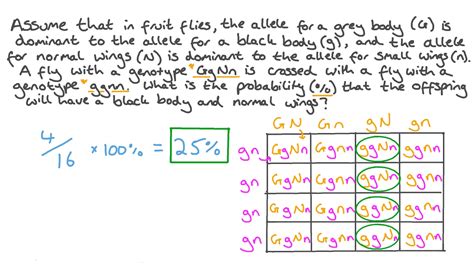 Assume that in fruit flies, the allele for a grey body (G) is
dominant to the allele for a black body (g), and the allele
for normal wings (N) is dominant to the allele for small wings (n).
A fly with a genotype *GgNn is crossed with a fly with a
genotype *ggnn. What is the probability (%) that the offspring
will have a black body and normal wings?
4/16 × 100% = 25%
GN Gn gN gn
gn GgNn Ggnn ggNn ggnn
gn GgNn Ggnn ggNn ggnn
gn GgNn Ggnn ggNn ggnn
gn GgNn Ggnn ggNn ggnn